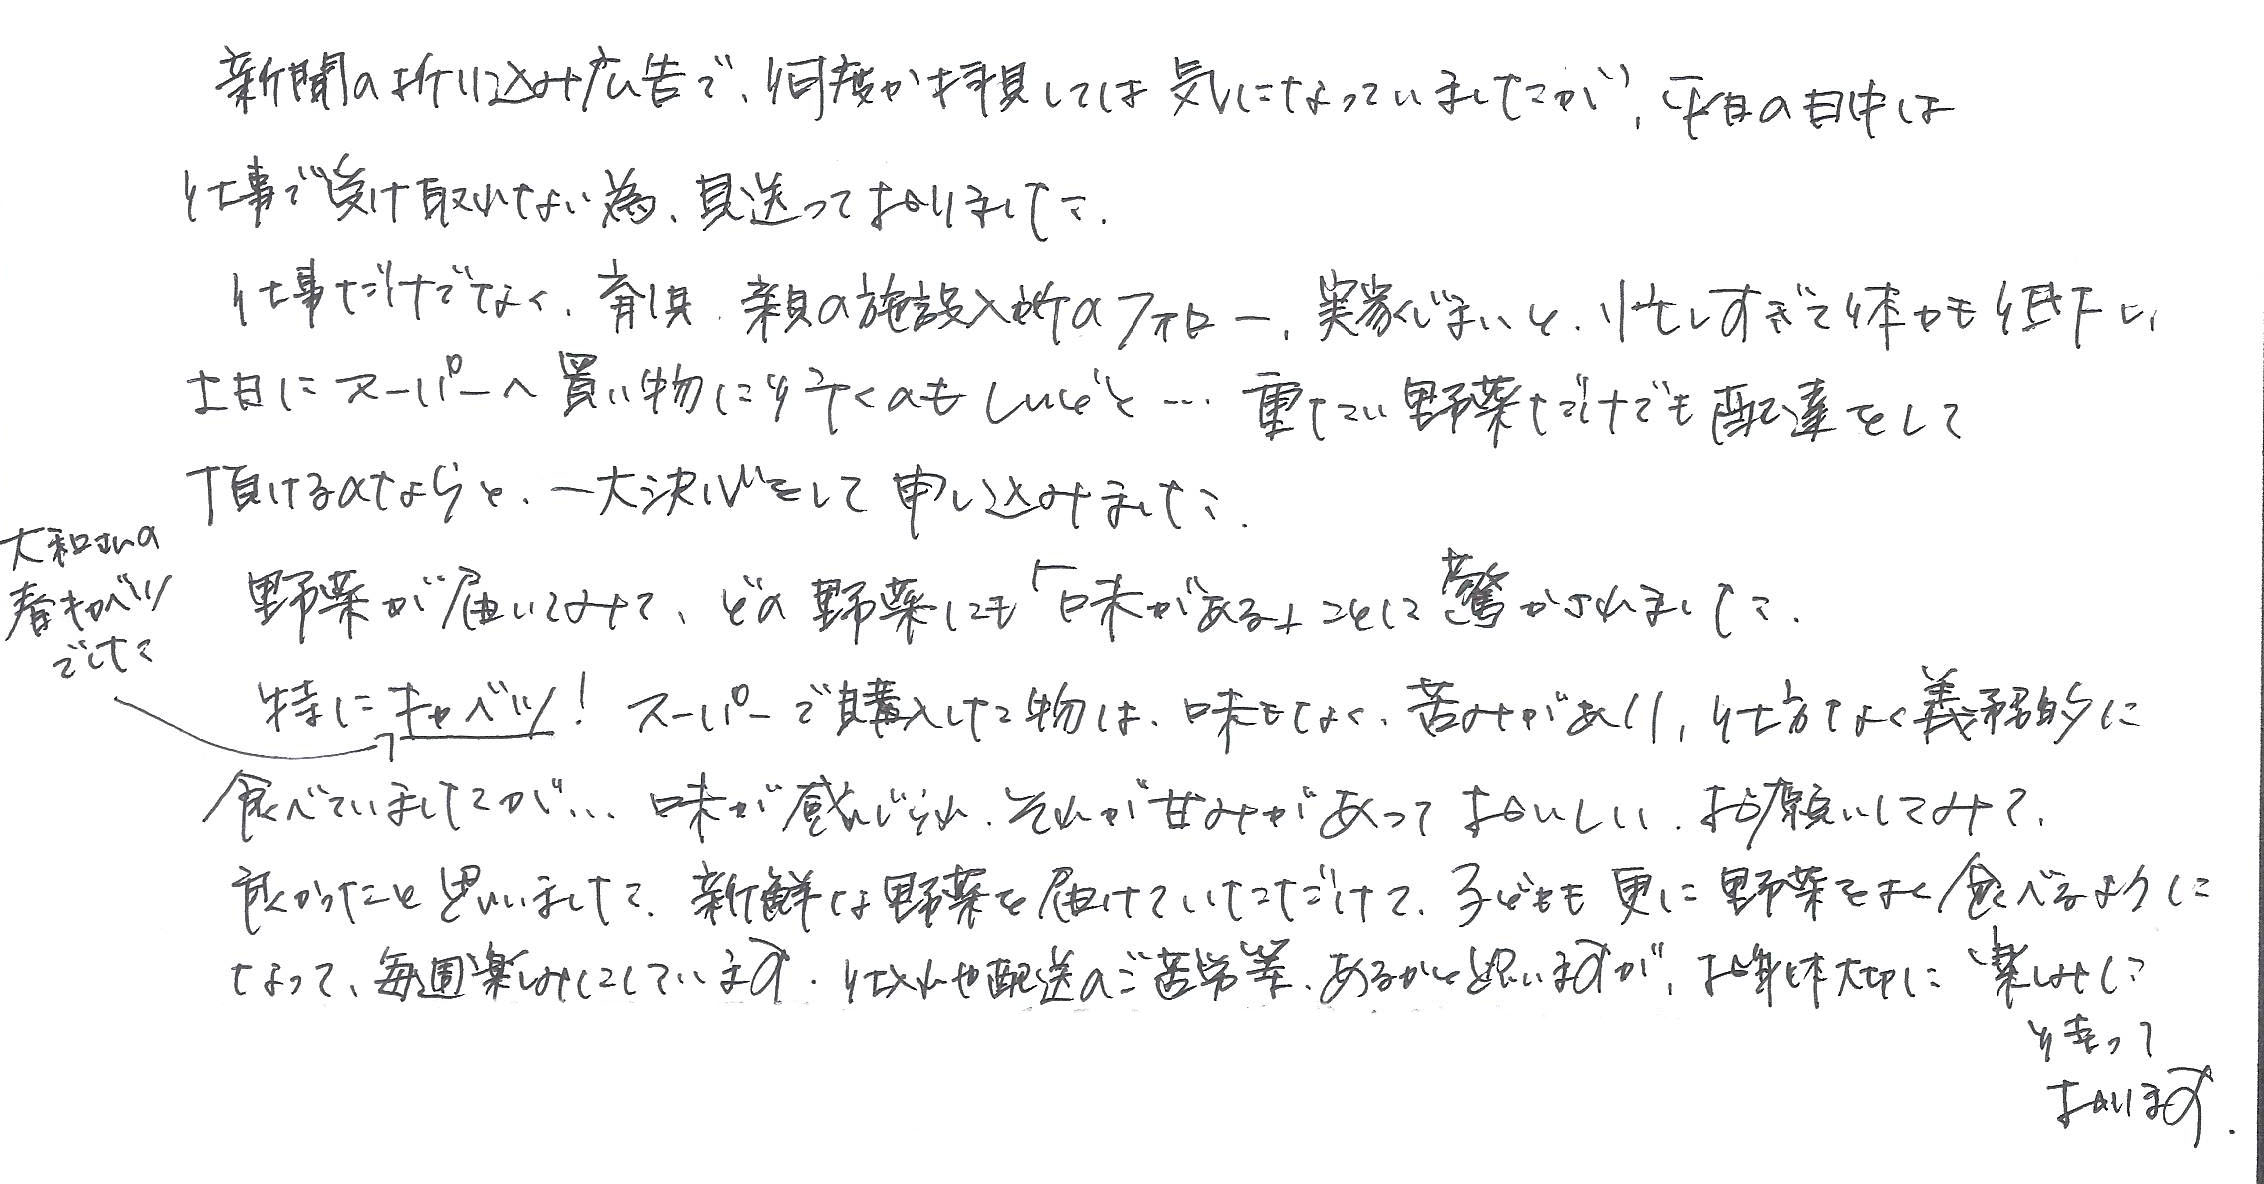 新聞の折り込み広告で、何度か拝見しては気になっていましたが、平日の日中は
仕事で受け取れない為、見送っておりました.
仕事だけでなく、育児、親の施設入所のフォロー、実家じまいと、忙しすぎて体力も低下し、
土日にスーパーへ買い物に行くのもしんどと… 重たい野菜だけでも配達をして
頂けるのならと、一大決心をして申し込みました.
野菜が届いてみて、どの野菜にも「味がある」ことに驚かされました.
特にキャベツ! スーパーで購入した物は、味もなく、苦みがあり、仕方なく義務的に
食べていましたが... 味が感じられ、それが甘みがあっておいしい、お願いしてみて、
良かったと思いました. 新鮮な野菜を届けていただけて、子どもも更に野菜をよく食べるように
なって、毎週楽しみにしています. 仕入れや配送のご苦労等、あるかと思いますが、お身体大切に 楽しみに
待って
おります.
大和さんの
春キャベツ
でした